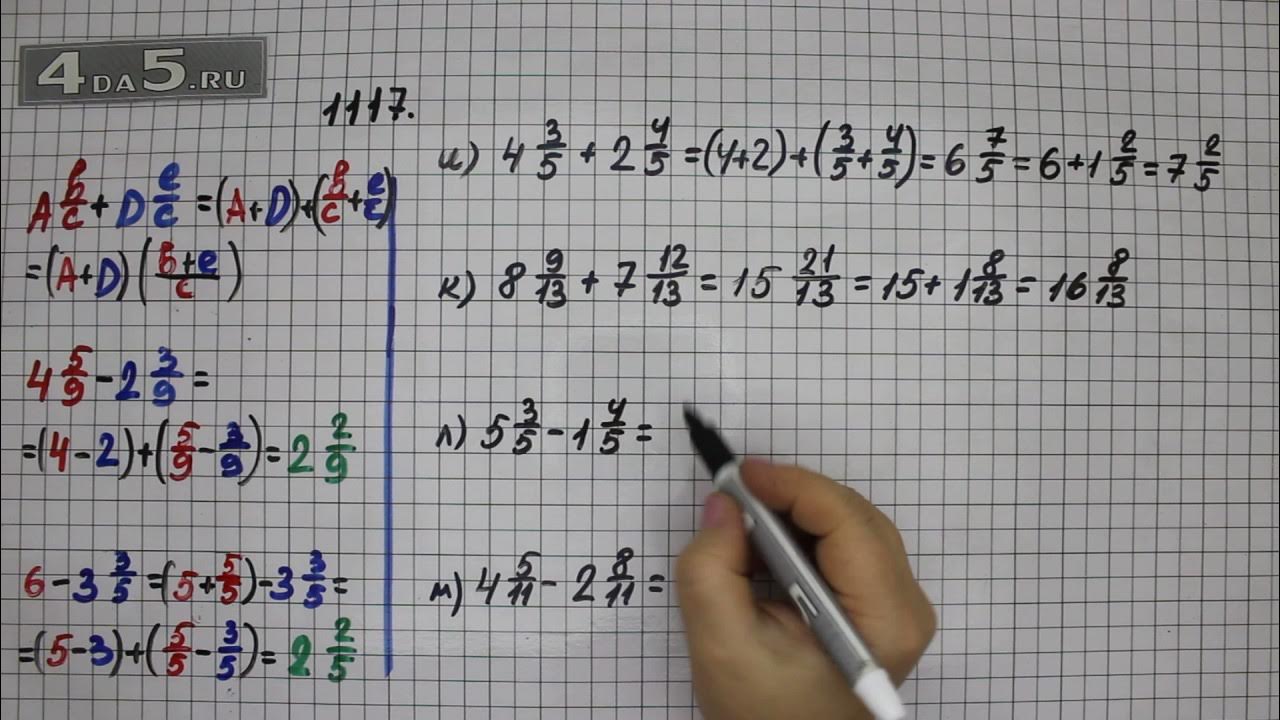 4DA5.RU
1117.
A b/c + D e/c = (A+D)+(b/c+e/c)
=(A+D)(b+e/c)
4 5/9 - 2 3/9 =
=(4-2)+(5/9-3/9)=2 2/9
6-3 3/5=(5+5/5)-3 3/5=
=(5-3)+(5/5-3/5)=2 2/5
и) 4 3/5 + 2 4/5 =(4+2)+(3/5+4/5)=6 7/5=6+1 2/5=7 2/5
к) 8 9/13 + 7 12/13 = 15 21/13 = 15+1 8/13 = 16 8/13
л) 5 3/5 - 1 4/5 =
м) 4 5/11 - 2 8/11 =